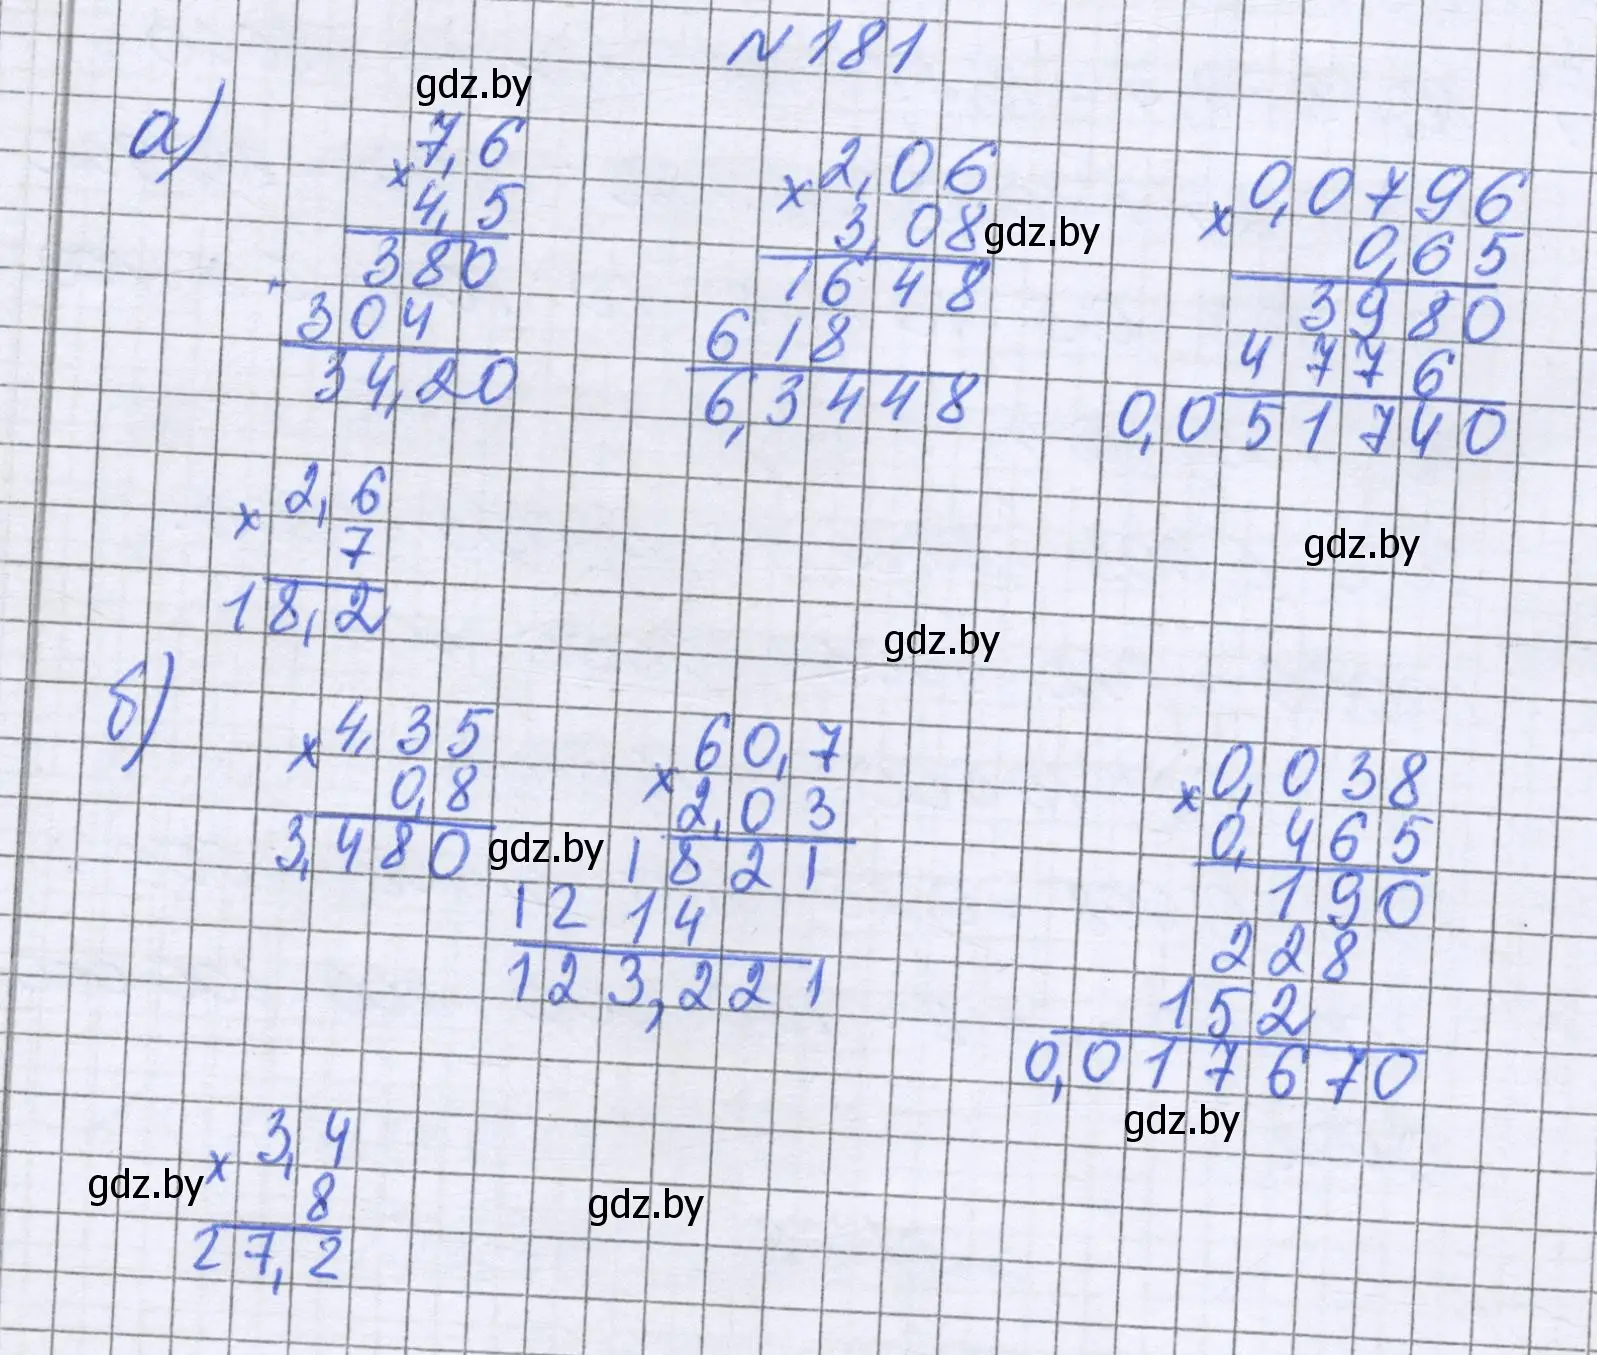 N 181
gdz.by
а)
7,6
× 4,5
380
304
34,20
2,06
× 3,08
gdz.by
1648
618
6,3448
0,0796
× 0,65
3980
4776
0,051740
2,6
× 7
18,2
gdz.by
gdz.by
б)
4,35
× 0,8
3,480
gdz.by
60,7
× 2,03
1821
1214
123,221
0,038
× 0,465
190
228
152
0,017670
gdz.by
3,4
× 8
27,2
gdz.by
gdz.by